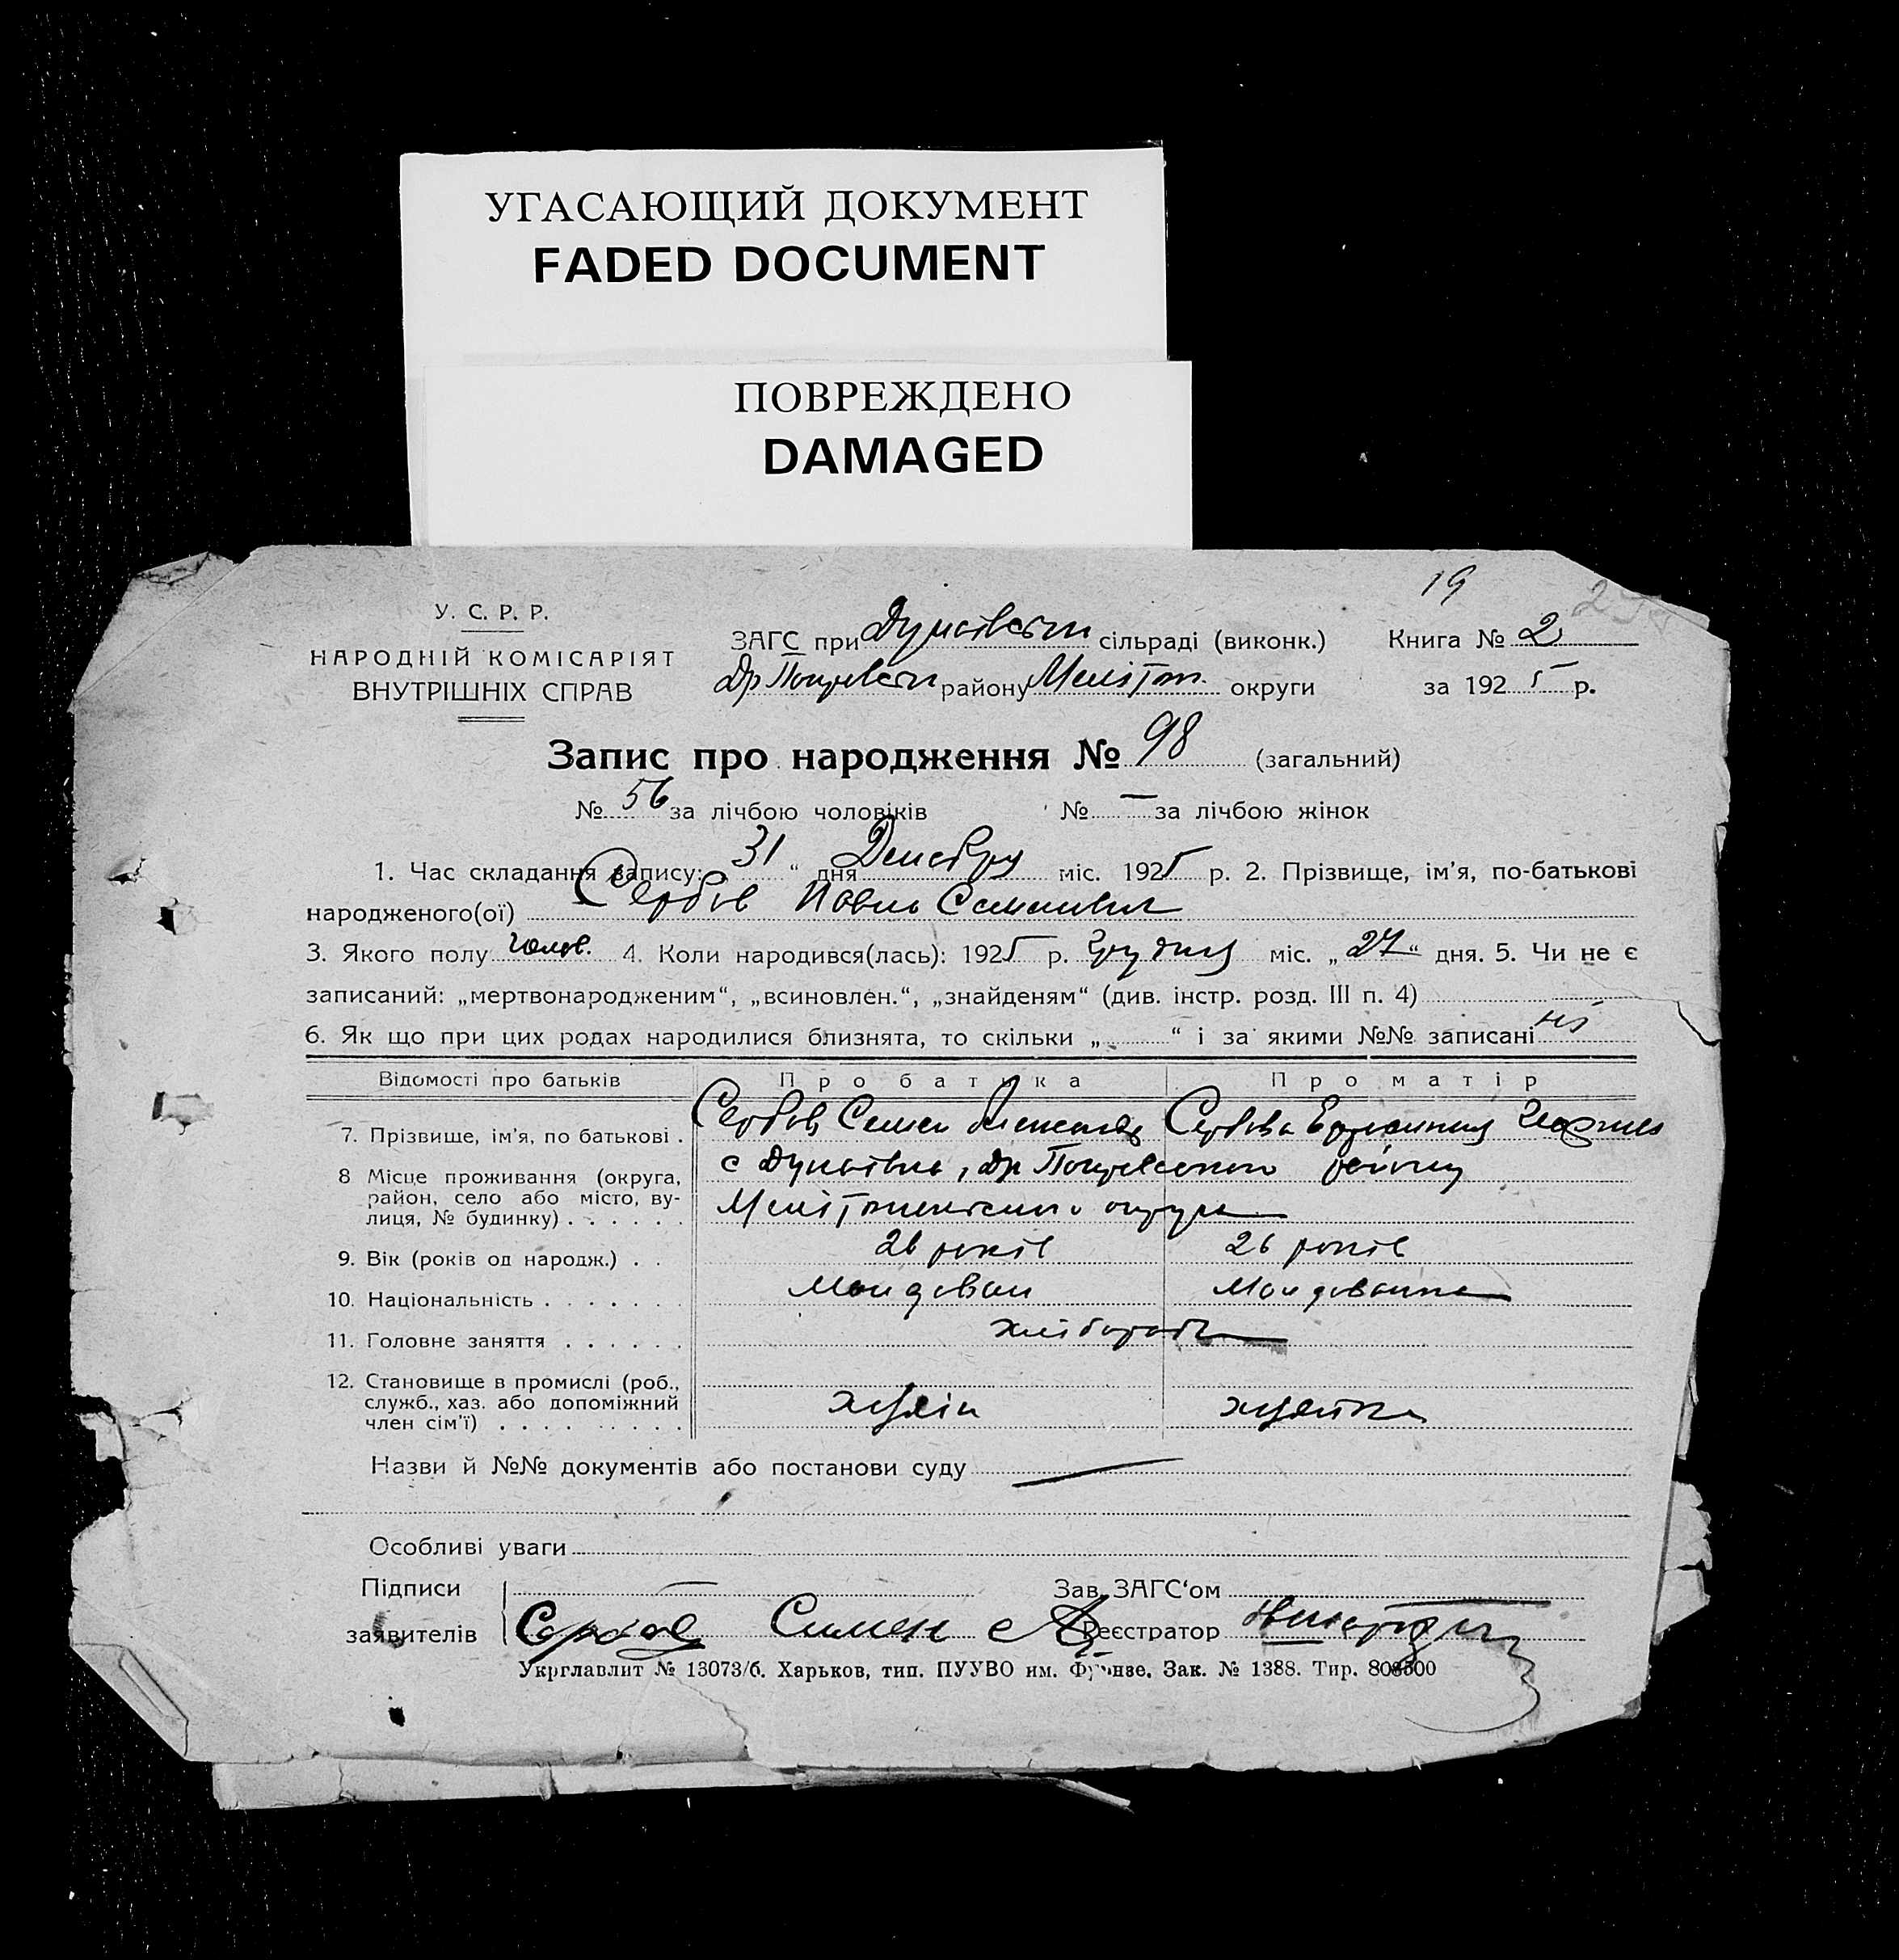 УГАСАЮЩИЙ ДОКУМЕНТ
FADED DOCUMENT
ПОВРЕЖДЕНО
DAMAGED
19
У. С. Р. Р.
НАРОДНІЙ КОМІСАРІЯТ
ВНУТРІШНІХ СПРАВ
ЗАГС при сільраді (виконк.) Книга № 2
району Меліт. округи за 1925 р.
Запис про народження № 98 (загальний)
№ 56 за лічбою чоловіків № — за лічбою жінок
1. Час складання запису: „ 31 “ дня Декабру міс. 1925 р. 2. Прізвище, ім'я, по-батькові
народженого(ої) Сербов Павло Семенович
3. Якого полу чолов. 4. Коли народився(лась): 1925 р. Грудня міс. „ 27 “ дня. 5. Чи не є
записаний: „мертвонародженим“, „всиновлен.“, „знайденям“ (див. інстр. розд. III п. 4)
6. Як що при цих родах народилися близнята, то скільки „ “ і за якими №№ записані ні
Відомості про батьків Про батька Про матір
7. Прізвище, ім'я, по батькові . Сербов Семен Сербова
8 Місце проживання (округа,
район, село або місто, ву-
лиця, № будинку) . . . . . .
с Дунаївка, району
Мелітопольського округа
9. Вік (років од народж.) . . 26 років 26 років
10. Національність . . . . . . . Молдован Молдованка
11. Головне заняття . . . . . . хлібороб
12. Становище в промислі (роб.,
служб., хаз. або допоміжний
член сім'ї) . . . . . . . . . хазяін хазяйка
Назви й №№ документів або постанови суду —
Особливі уваги
Підписи Зав. ЗАГС'ом
заявителів Сербов Симен Реєстратор
Укрглавлит № 13073/б. Харьков, тип. ПУУВО им. Фрунзе. Зак. № 1388. Тир. 808500